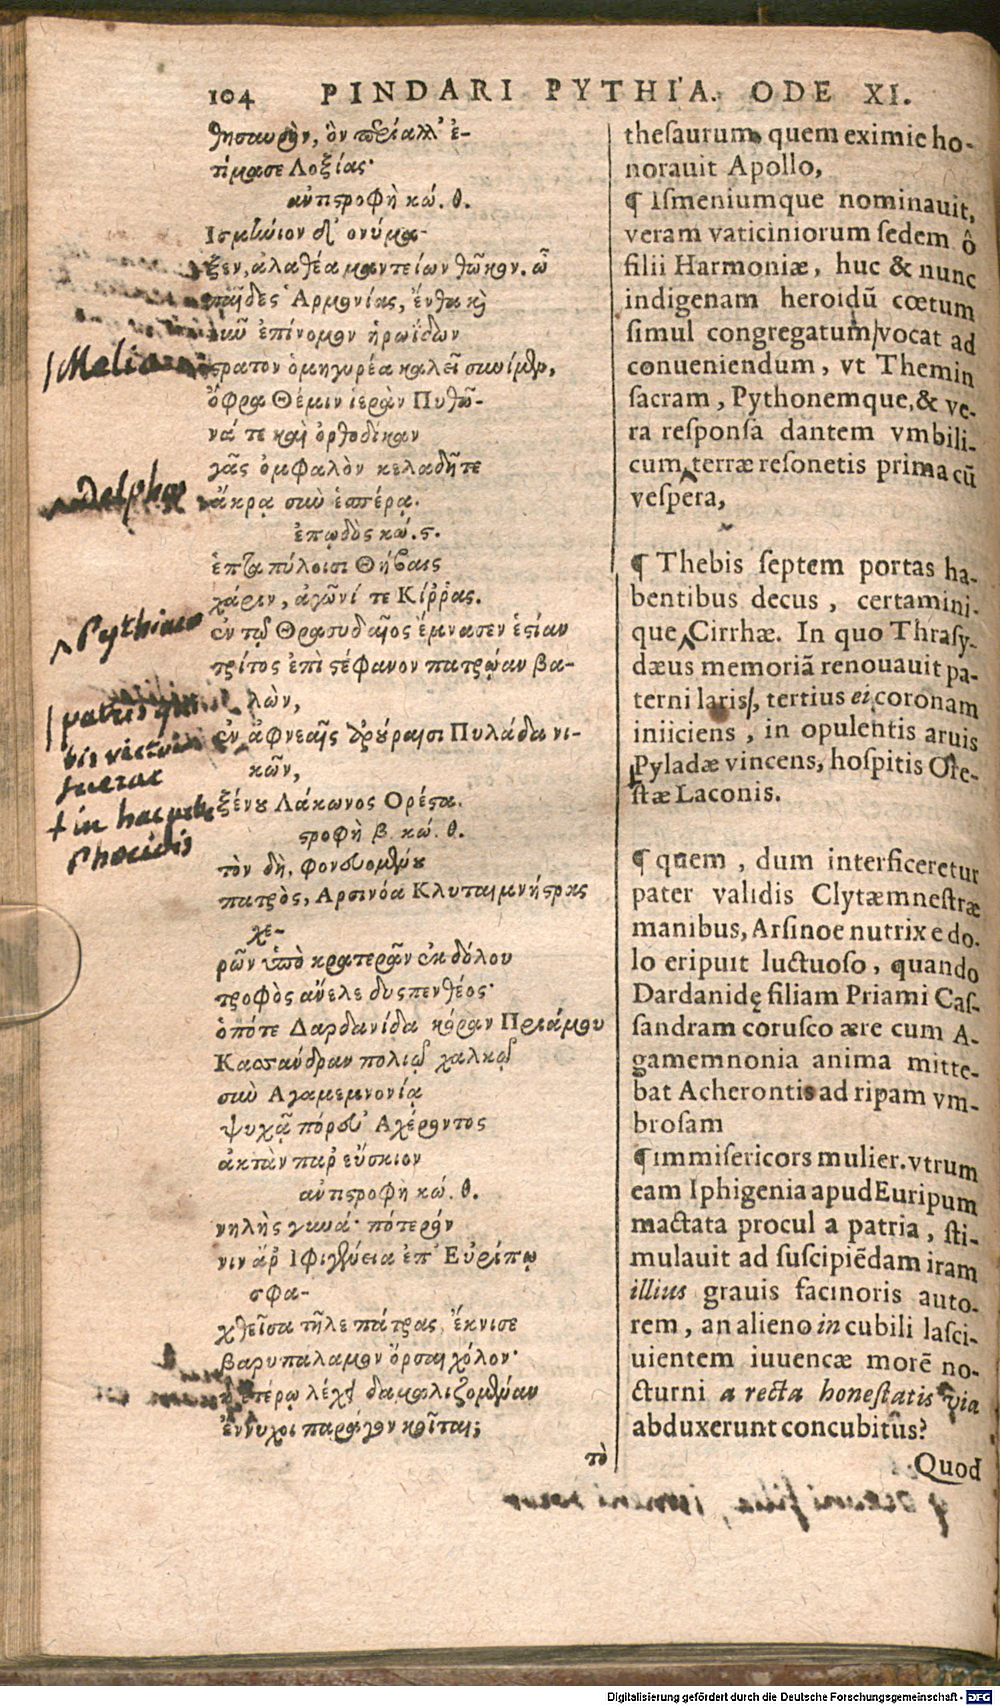 104 PINDARI PYTHIA. ODE XI.
θησαυρὸν, ὃν περίαλλ' ἐ-
τίμασε Λοξίας·
ἀντιστροφὴ κώ. θ.
Ισμήνιον δ' ονύμα-
ξεν, ἀλαθέα μαντείων θῶκον. ὦ
παῖδες Ἁρμονίας, ἔνθα καὶ
νῦν ἐπίνομον ἡρωΐδων
στρατὸν ὁμηγυρέα καλεῖ συνίμεν,
ὄφρα Θέμιν ἱερὰν Πυθῶ-
νά τε καὶ ὀρθοδίκαν
γᾶς ὀμφαλὸν κελαδῆτε
ἄκρᾳ σὺν ἑσπέρᾳ.
ἐπῳδὸς κώ. ς.
ἑπταπύλοισι Θήβαις
χάριν, ἀγῶνί τε Κίῤῥας.
ἐν τῷ Θρασυδαῖος ἔμνασεν ἑστίαν
τρίτος ἐπὶ στέφανον πατρῴαν βα-
λὼν,
ἐν ἀφνεαῖς ἀρούραισι Πυλάδα νι-
κῶν,
ξένου Λάκωνος Ορέστα.
στροφὴ β κώ. θ.
τὸν δὴ, φονευομένου
πατρὸς, Αρσινόα Κλυταιμνήστρας
χε-
ρῶν ὑπὸ κρατερᾶν ἐκ δόλου
τροφὸς ἄνελε δυσπενθέος·
ὁπότε Δαρδανίδα κόραν Πριάμου
Κασσάνδραν πολιῷ χαλκῷ
σὺν Αγαμεμνονίᾳ
ψυχᾷ πόρευσ' Αχέροντος
ἀκτὰν παρ' εὔσκιον
ἀντιστροφὴ κώ. θ.
νηλὴς γυνά· πότερόν
νιν ἄρ' Ιφιγένεια ἐπ' Εὐρίπῳ
σφα-
χθεῖσα τῆλε πάτρας, ἔκνισε
βαρυπάλαμον ὄρσαι χόλον·
ἢ ἑτέρῳ λέχει δαμαλιζομέναν
ἔννυχοι παράγον κοῖται;
τὸ
thesaurum quem eximie ho-
norauit Apollo,
¶ Ismeniumque nominauit,
veram vaticiniorum sedem ô
filii Harmoniæ, huc & nunc
indigenam heroidũ cœtum
simul congregatum vocat ad
conueniendum, vt Themin
sacram, Pythonemque, & ve-
ra responsa dantem vmbili-
cum terræ resonetis prima cũ
vespera,
¶ Thebis septem portas ha-
bentibus decus, certamini-
que Cirrhæ. In quo Thrasy-
dæus memoriã renouauit pa-
terni laris, tertius ei coronam
iniiciens, in opulentis aruis
Pyladæ vincens, hospitis Ore-
stæ Laconis.
¶ quem, dum interficeretur
pater validis Clytæmnestræ
manibus, Arsinoe nutrix e do-
lo eripuit luctuoso, quando
Dardanidę filiam Priami Cas-
sandram corusco ære cum A-
gamemnonia anima mitte-
bat Acherontis ad ripam vm-
brosam
¶ immisericors mulier. vtrum
eam Iphigenia apud Euripum
mactata procul a patria, sti-
mulauit ad suscipiẽdam iram
illius grauis facinoris auto-
rem, an alieno in cubili lasci-
uientem iuuencæ morẽ no-
cturni a recta honestatis via
abduxerunt concubitus?
Quod
delphos
Pythiaco
+ in hac
Phocidis
Digitalisierung gefördert durch die Deutsche Forschungsgemeinschaft - DFG